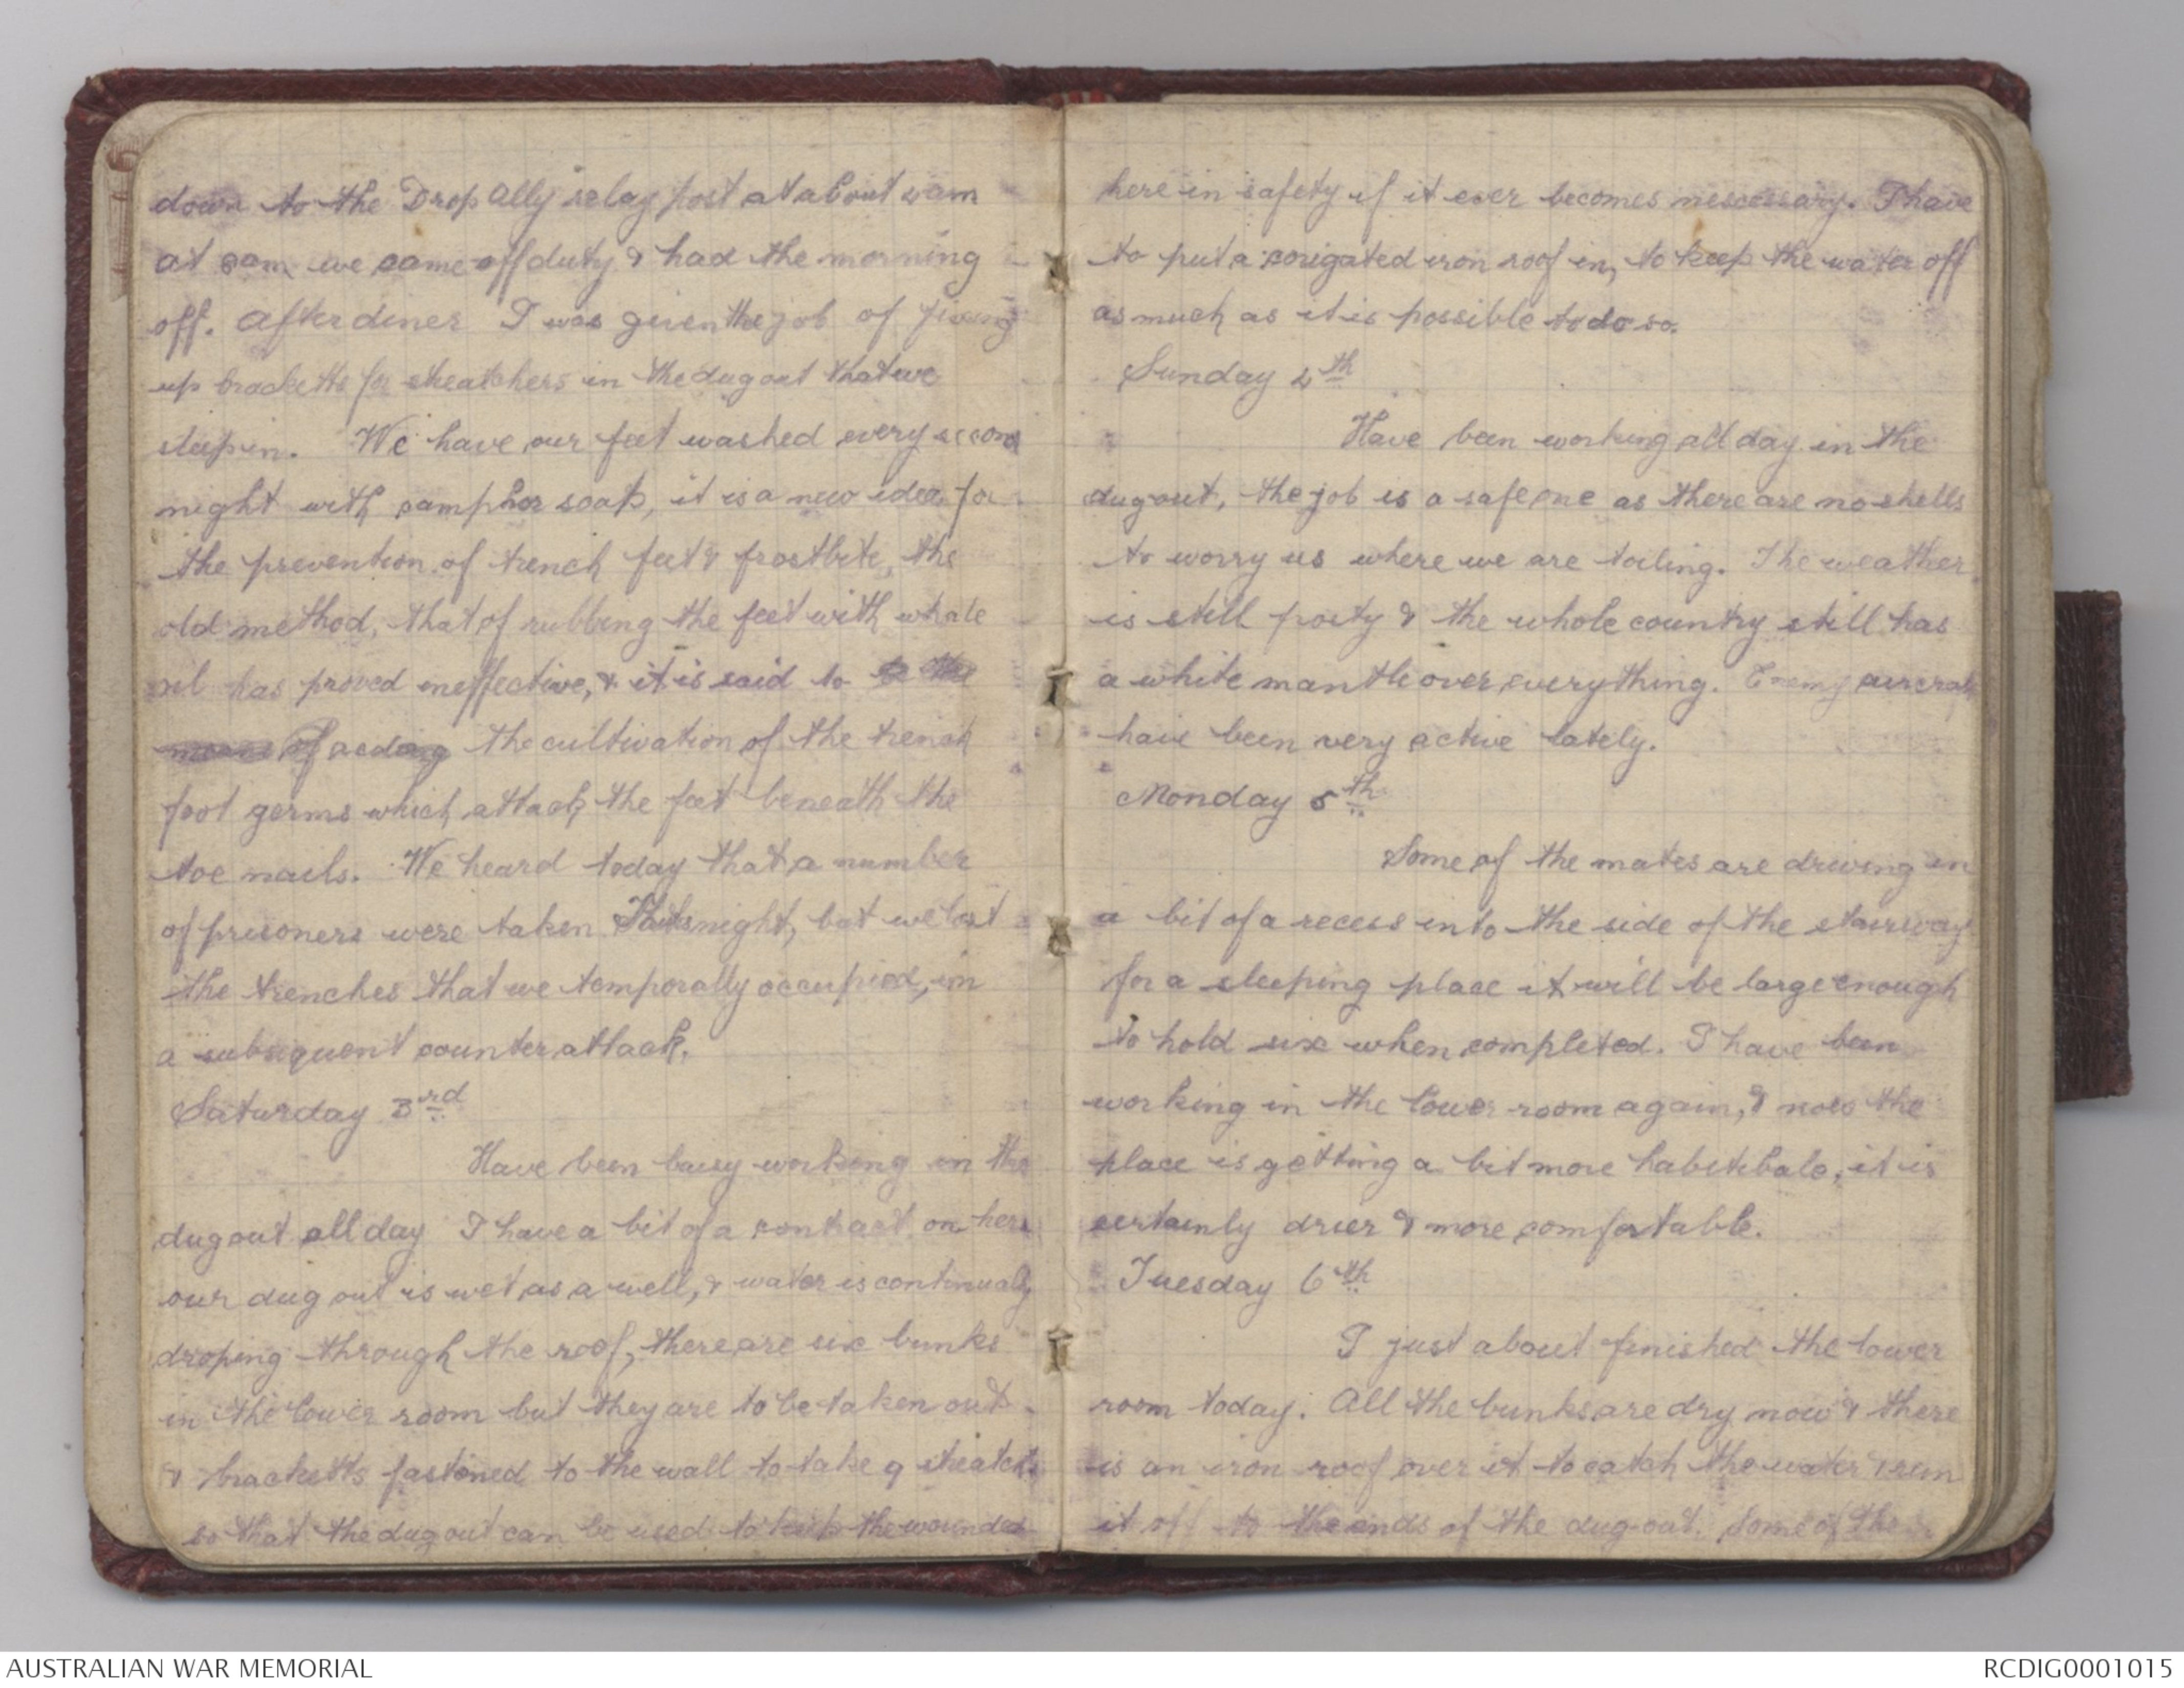 down to the Drop Ally relay post at about
at am we came off duty & had the morning
off. After diner I was given the job of fixing
up bracketts for streatchers in the dug out that we
sleep in. We have our feet washed every second
night with camphor soap, it is a new idea for
the prevention of trench feet & frostbite, the
old method, that of rubbing the feet with whale
oil has proved ineffective, & it is said to
the cultivation of the trench
foot germs which attack the feet beneath the
toe nails. We heard today that a number
of prisoners were taken night, but we lost
the trenches that we temporally occupied, in
a subsequent counter attack.
Saturday 3rd
Have been busy working in the
dug out all day I have a bit of a contract on here
our dug out is wet as a well, & water is continually
droping through the roof, there are six bunks
in the lower room but they are to be taken out
& bracketts fastened to the wall to take 9 streatchers
so that the dug out can be used to keep the wounded
here in safety if it ever becomes nescessary. I have
to put a corigated iron roof in, to keep the water off
as much as it is possible to do so.
Sunday 4th
Have been working all day in the
dug out, the job is a safe one as there are no shells
to worry us where we are toiling. The weather
is still frosty & the whole country still has
a white mantle over everything. Enemy aircraft
have been very active lately.
Monday 5th
Some of the mates are driving in
a bit of a recess into the side of the stairway
for a sleeping place it will be large enough
to hold six when completed. I have been
working in the lower room again, & now the
place is getting a bit more habitibale, it is
certainly drier & more comfortable.
Tuesday 6th
I just about finished the lower
room today. All the bunks are dry now & there
is an iron roof over it to catch the water & run
it off to the ends of the dug-out. Some of the
AUSTRALIAN WAR MEMORIAL
RCDIG0001015